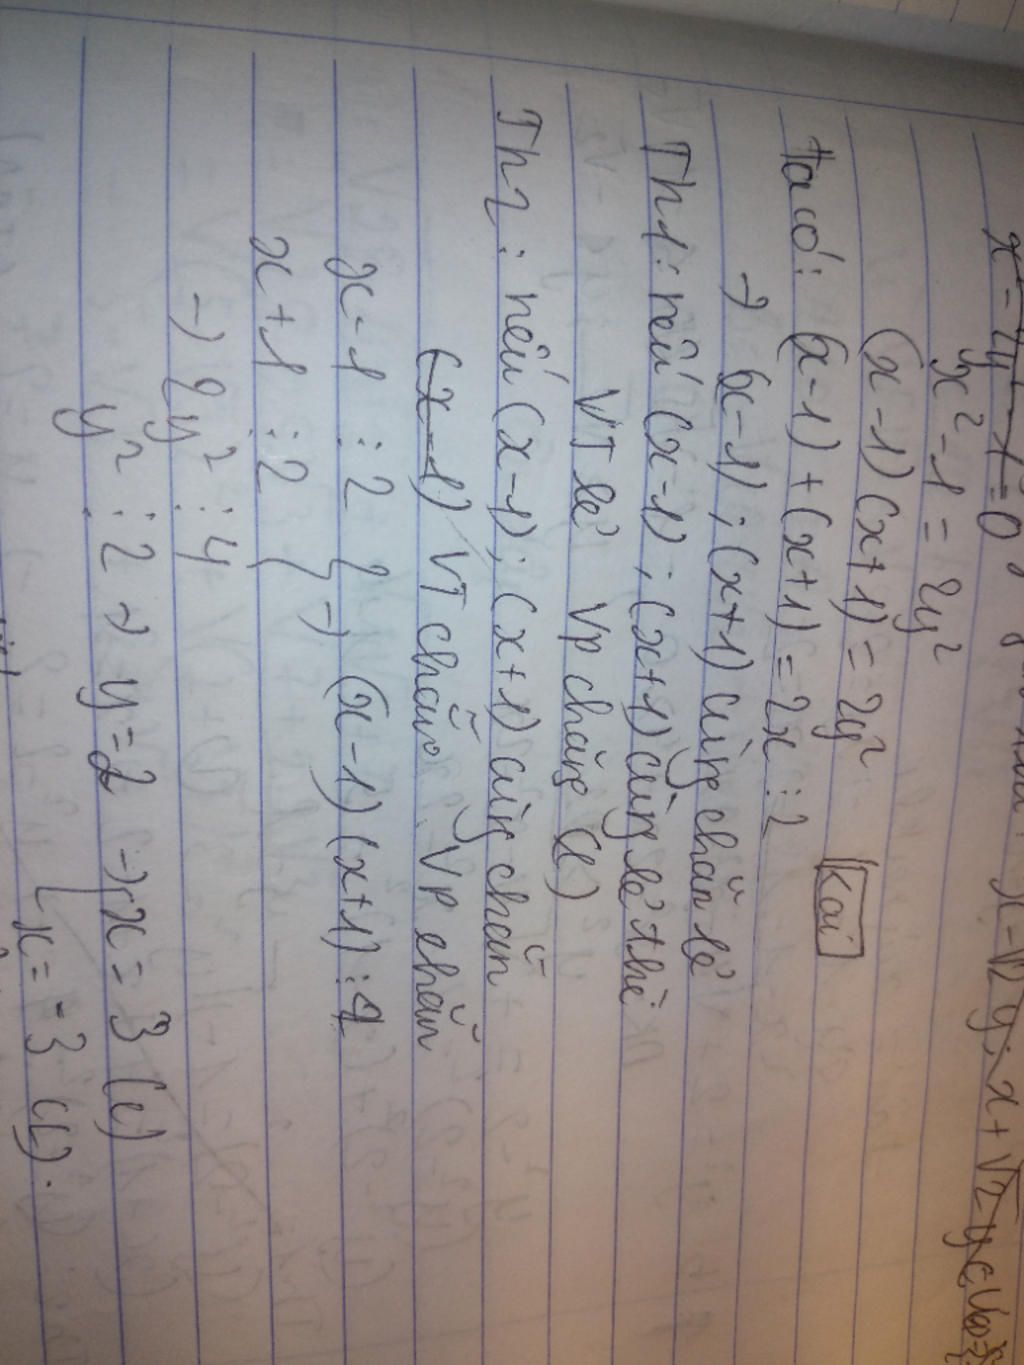 x² - 2y² - 1 = 0
x - √2 y; x + √2 y
x² - 1 = 2y²
(x - 1)(x + 1) = 2y² Kai
ta có: (x - 1) + (x + 1) = 2x ⋮ 2
→ (x - 1); (x + 1) cùng chẵn lẻ
Th1: nếu (x - 1); (x + 1) cùng lẻ thì
VT lẻ VP chẵn (L)
Th2: nếu (x - 1); (x + 1) cùng chẵn
(x - 1) VT chẵn VP chẵn
x - 1 ⋮ 2 } → (x - 1)(x + 1) ⋮ 4
x + 1 ⋮ 2
→ 2y² ⋮ 4
y² ⋮ 2 → y = 2 → x = 3 (c)
x = -3 (L).